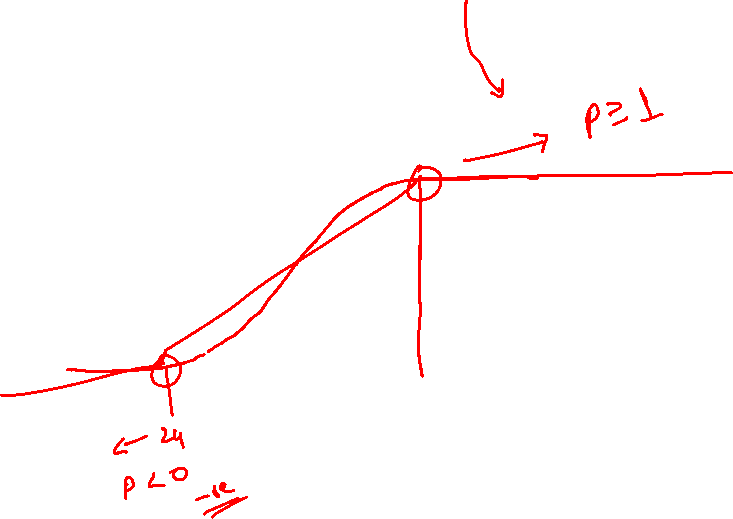 p ≥ 1
← 24
p < 0
-ve